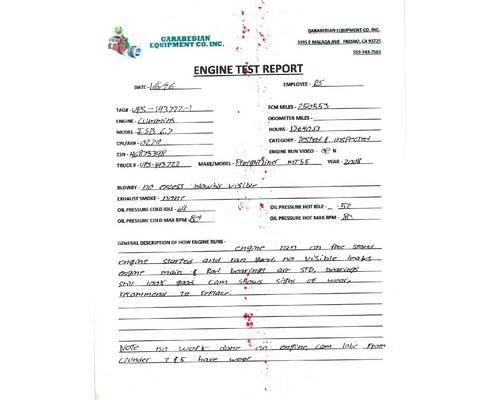 GARABEDIAN
EQUIPMENT CO. INC.
GARABEDIAN EQUIPMENT CO. INC.
3395 E MALAGA AVE FRESNO, CA 93725
ENGINE TEST REPORT
DATE - EMPLOYEE -
TAG# - UPS-143722-1 ECM MILES - 250553
ENGINE - Cummins ODOMETER MILES -
MODEL ISB 6.7 HOURS
CPL/ARR - 0279 CATEGORY - Tested & inspected
ESN - 46875398 ENGINE RUN VIDEO - Y N
TRUCK # - UPS-143722 MAKE/MODEL - Freightliner MT55 YEAR - 2008
BLOWBY - no excess blowby visible
EXHAUST SMOKE - none
OIL PRESSURE COLD IDLE - 69 OIL PRESSURE HOT IDLE - 52
OIL PRESSURE COLD MAX RPM - OIL PRESSURE HOT MAX RPM -
GENERAL DESCRIPTION OF HOW ENGINE RUNS - engine ran on free stand
engine started and ran good, no visible leaks
engine main & Rod bearings are STD, bearings
still look good cam shows signs of wear,
recommend to replace.
Note no work done on engine, cam lobe from
cylinder 2 & 5 have wear